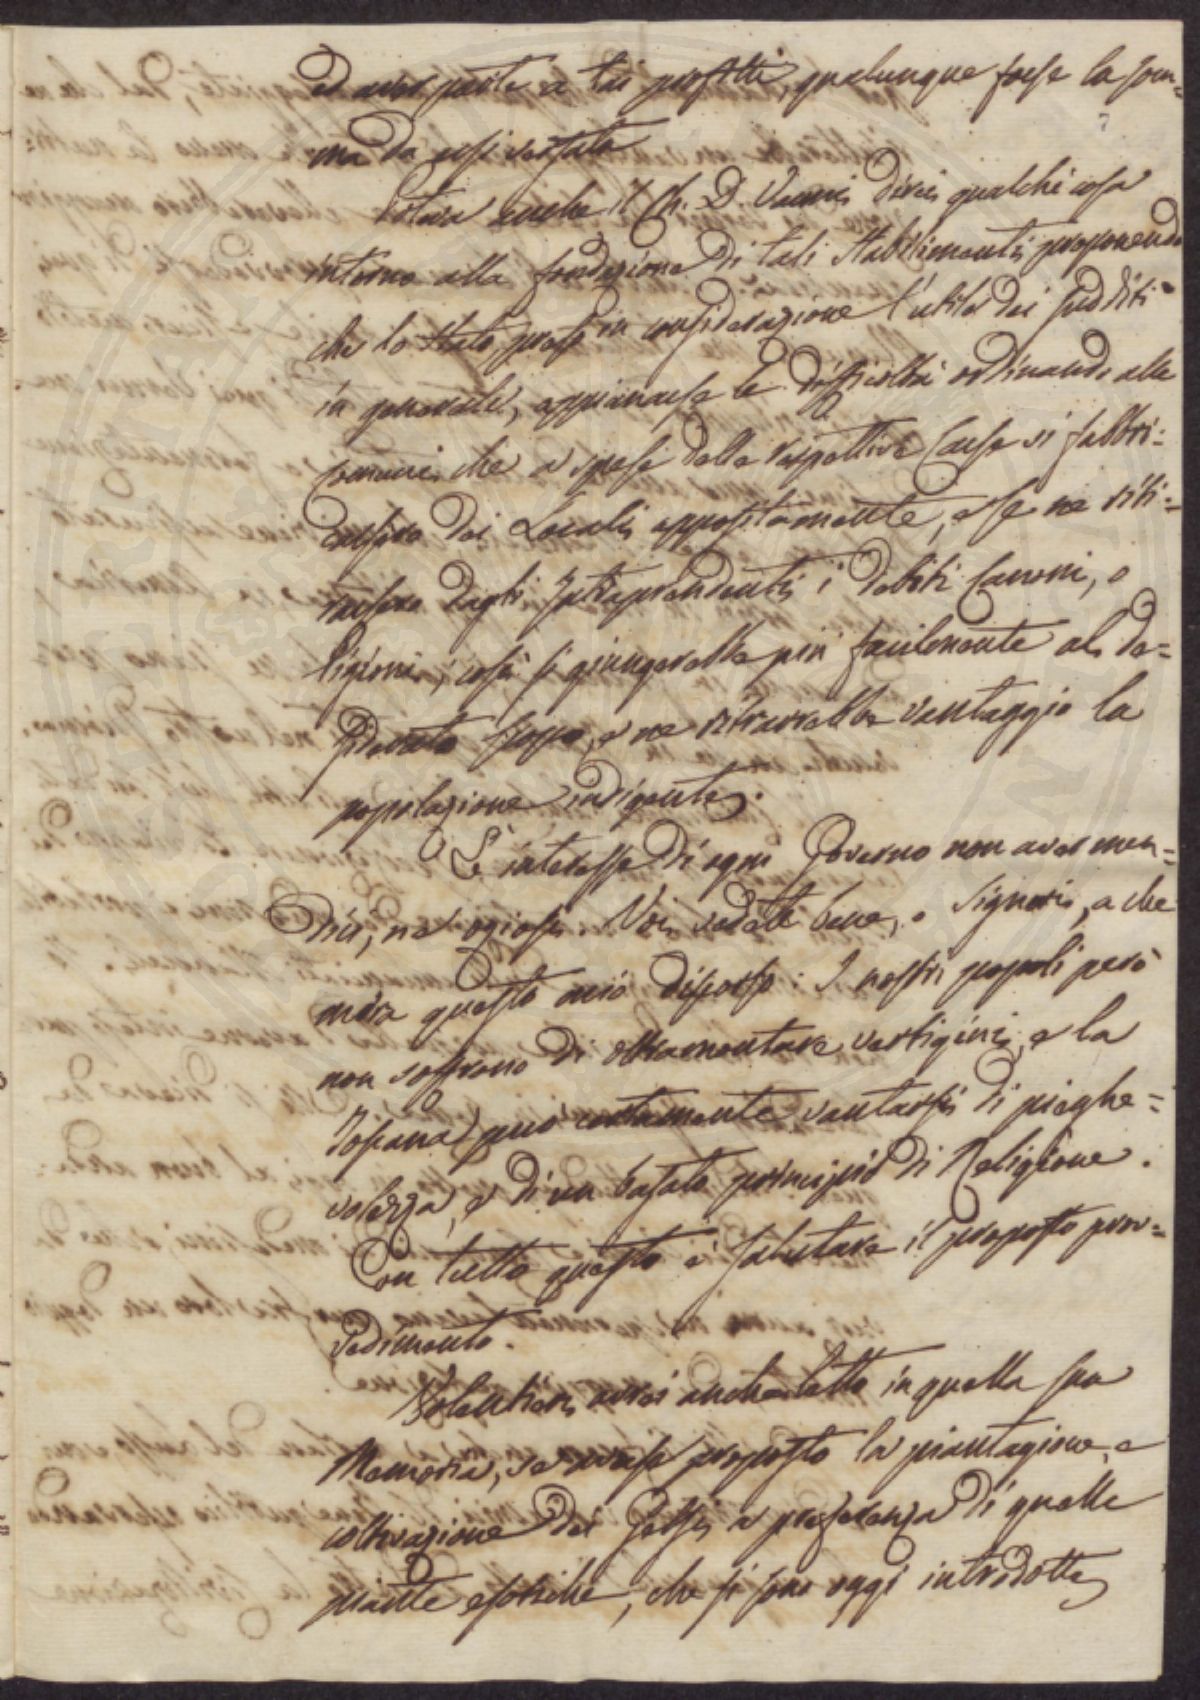 ed aver parte a tai profitti, qualunque fosse la som=
ma da essi versata
7
Potava anche il Ch. D. Vannis dirci qualche cosa
intorno alla fondazione di tali Stabilimenti proponendo
che lo Stato presa in considerazione l'utile dei sudditi
in generale, appianasse le difficoltà ordinando alle
Comuni che a spese delle respettive Casse si fabbri=
cassero dei Locali appositamente, e se ne riti=
rassero dagli Intraprendenti i debiti Canoni, o
Pigioni; così si giungerebbe più facilmente al de=
siderato scopo, e ne ritrarrebbe vantaggio la
popolazione indigente.
È interesse di ogni Governo non aver men=
dici, nè oziosi. Voi vedete bene, o Signori, a che
mira questo mio discorso: I nostri popoli però
non soffrono di oltramontane vertigini, e la
Toscana può certamente vantarsi di pieghe=
volezza, e di un basato principio di Religione.
Con tutto questo è salutare il proposto prov=
vedimento.
Volentieri avrei anche letto in quella sua
Memoria, se avesse proposto la piantagione, e
coltivazione dei Gelsi a preferenza di quelle
piante esotiche, che si sono oggi introdotte